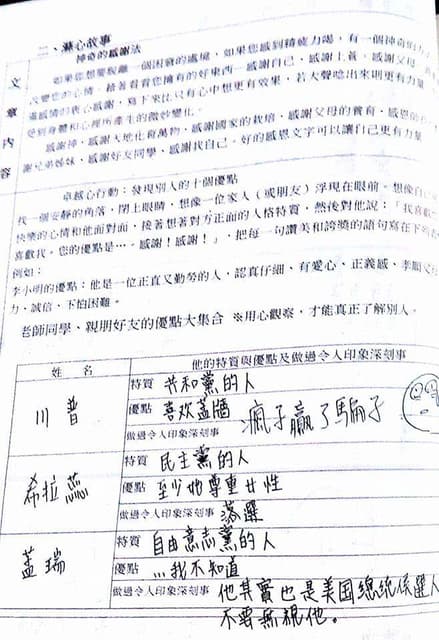 二、滌心故事
神奇的感謝法
如果您想要脫離一個困窘的處境，如果您感到精疲力竭，有一個神奇的
改變您的心情，接著看看您擁有的好東西—感謝自己，感謝上蒼，感謝父母
感情的衷心感謝，寫下來比只有心中想更有效果，若大聲唸出來則更有力量
受到身體和心裡所產生的微妙變化。
感謝神、感謝天地化育萬物、感謝國家的栽培、感謝父母的養育、感恩
謝兄弟姊妹、感謝好友同學、感謝我自己。好的感恩文字可以讓自己更有力量
文章內容
卓越心行動：發現別人的十個優點
找一個安靜的角落，閉上眼睛，想像一位家人（或朋友）浮現在眼前。想像自
快樂的心情和他面對面，接著想著對方正面的人格特質，然後對他說：「我喜
喜歡我。您的優點是…。感謝！感謝！」，把每一句讚美和誇獎的語句寫在下
例如：
李小明的優點：他是一位正直又勤勞的人，認真仔細、有愛心、正義感、孝順
力、誠信、不怕困難。
老師同學、親朋好友的優點大集合 ※用心觀察，才能真正了解別人。
姓 名 他的特質與優點及做過令人印象深刻事
川普 特質 共和黨的人
優點 喜欢蓋牆
做過令人印象深刻事 瘋子贏了騙子
希拉蕊 特質 民主黨的人
優點 至少她尊重女性
做過令人印象深刻事 落選
蓋瑞 特質 自由意志黨的人
優點 …我不知道
做過令人印象深刻事 他其實也是美国總統候選人
不要無視他。